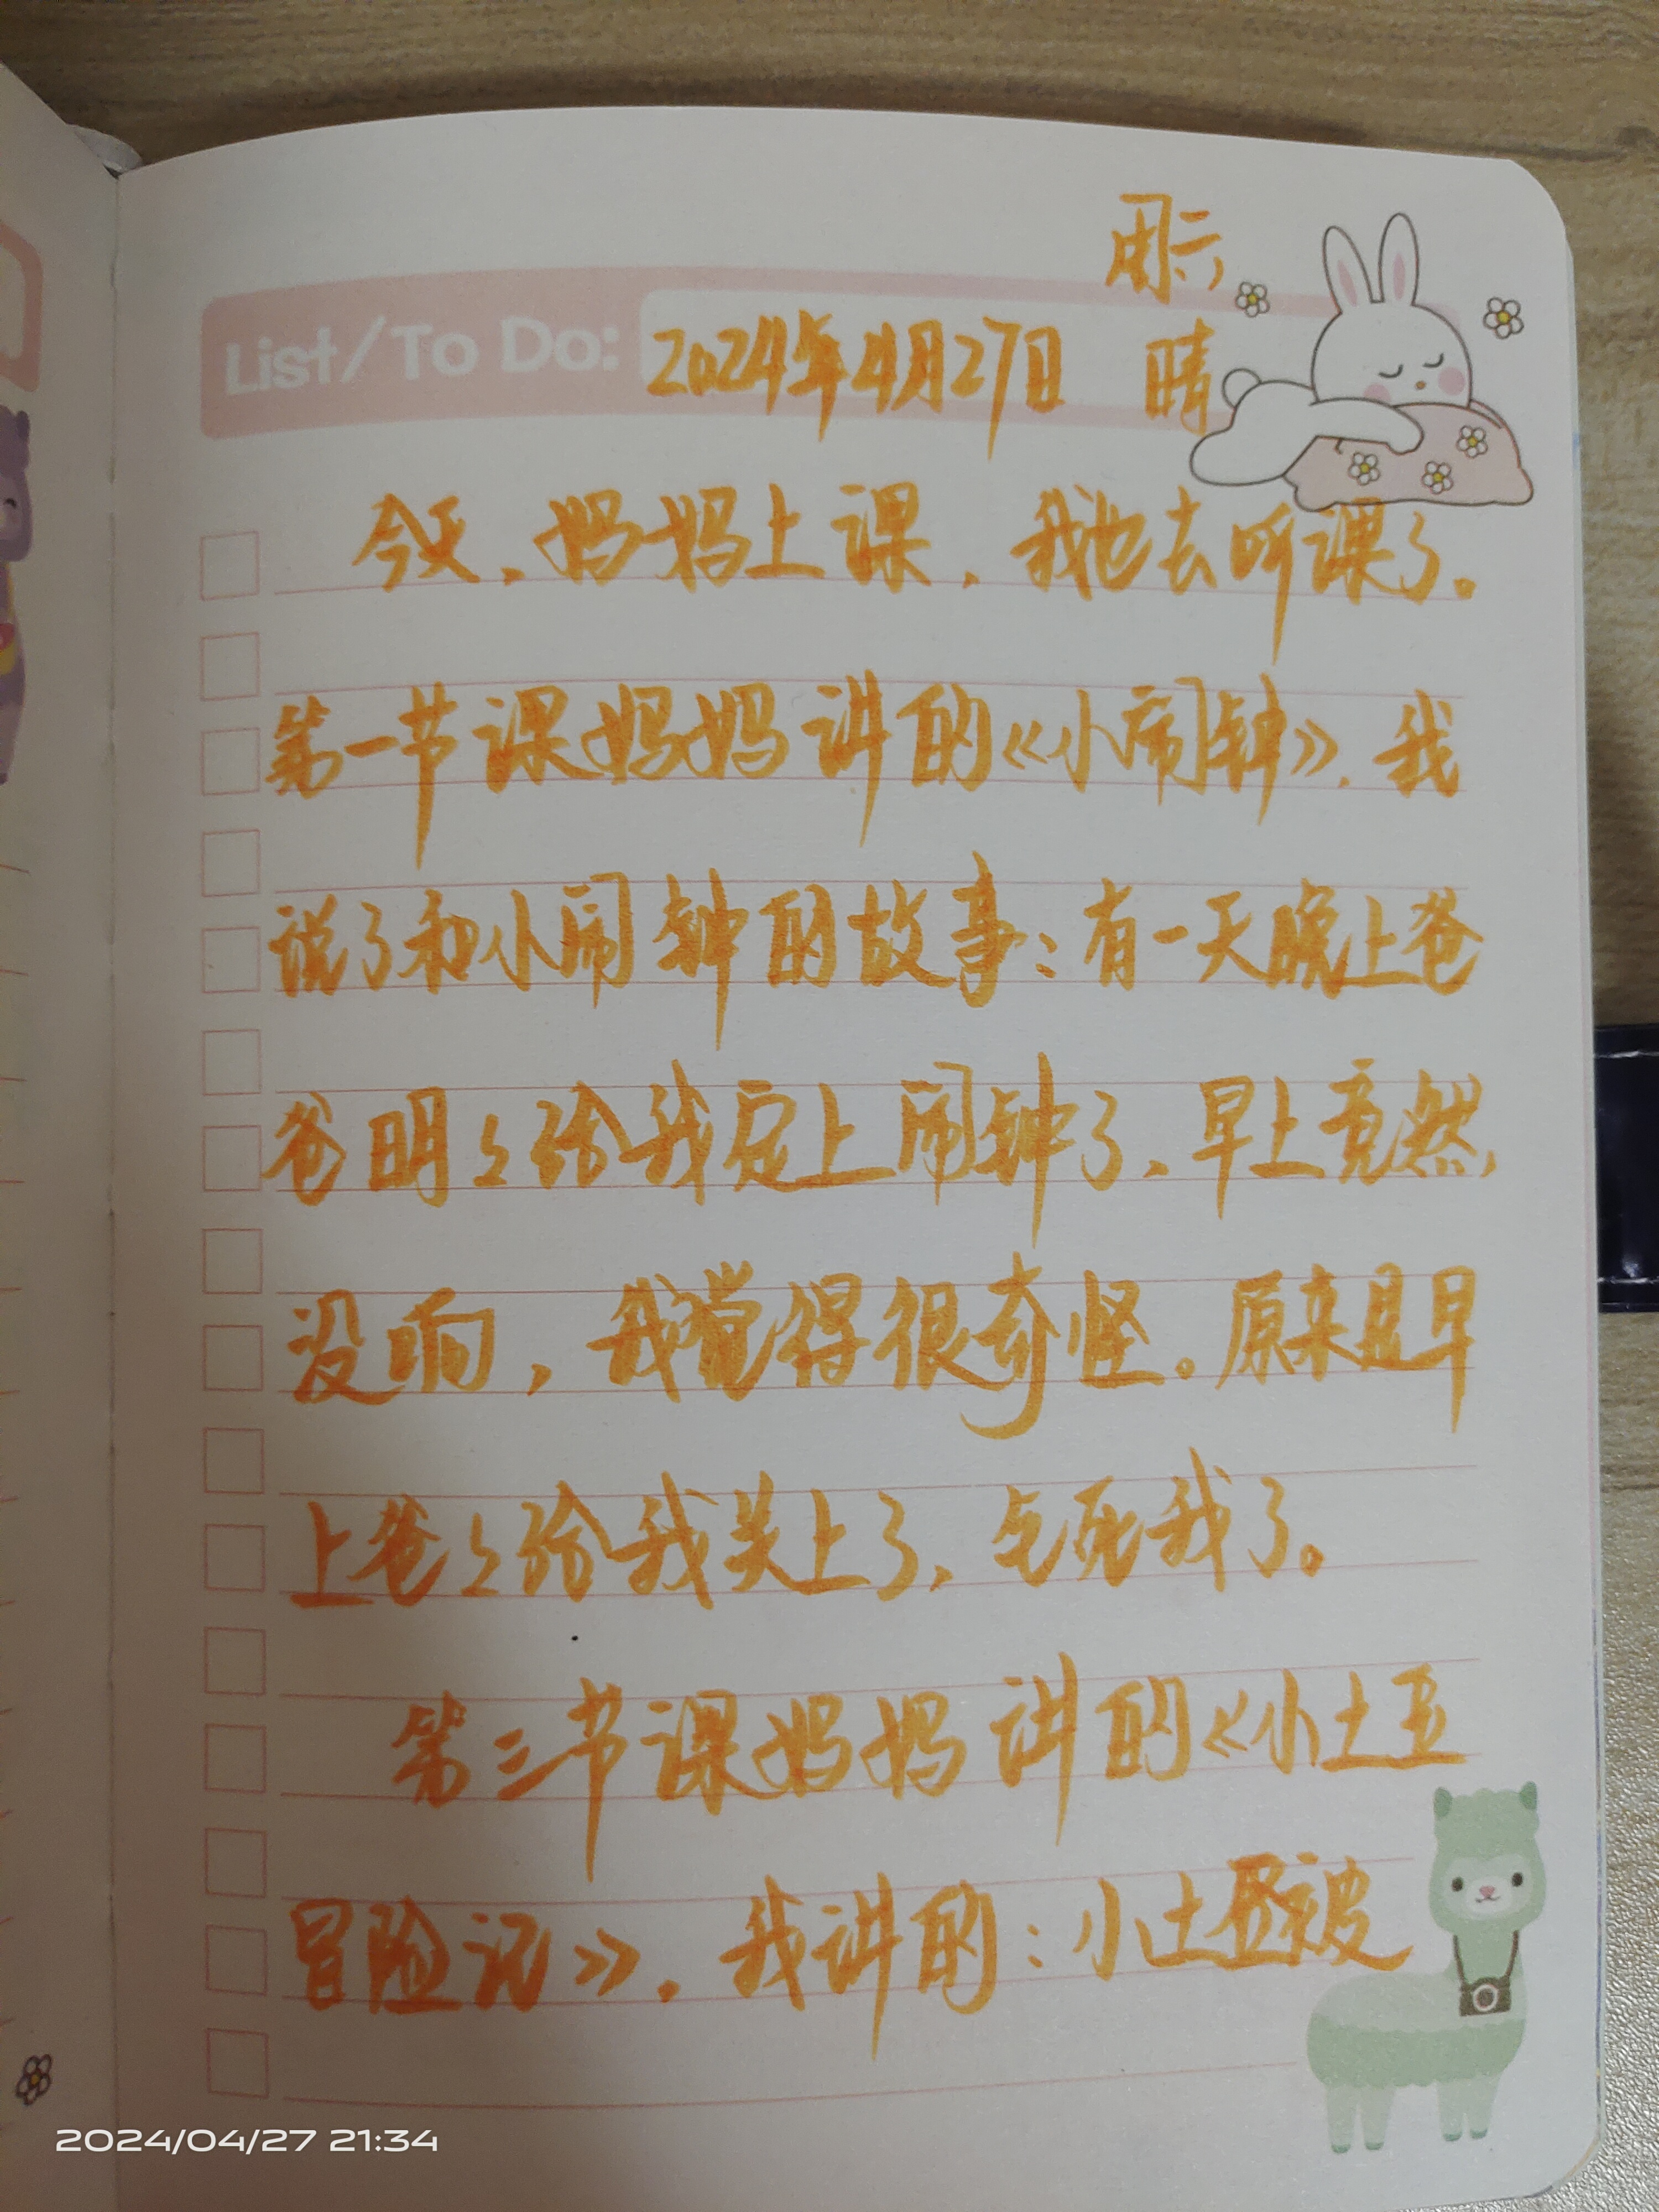 周六
List/To Do: 2024年4月27日 晴
今天，妈妈上课，我也去听课了。
第一节课妈妈讲的《小闹钟》，我
说了和小闹钟的故事：有一天晚上爸
爸明明给我定上闹钟了，早上竟然
没响，我觉得很奇怪。原来是早
上爸爸给我关上了，气死我了。
第三节课妈妈讲的《小土豆
冒险记》，我讲的：小土豆被
2024/04/27 21:34